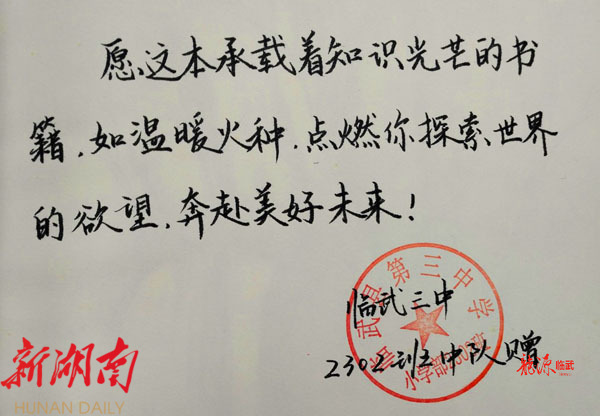 愿这本承载着知识光芒的书
籍,如温暖火种,点燃你探索世界
的欲望,奔赴美好未来!
临武县第三中学
临武三中
2302班中队赠
新湖南
HUNAN DAILY
龙源临武